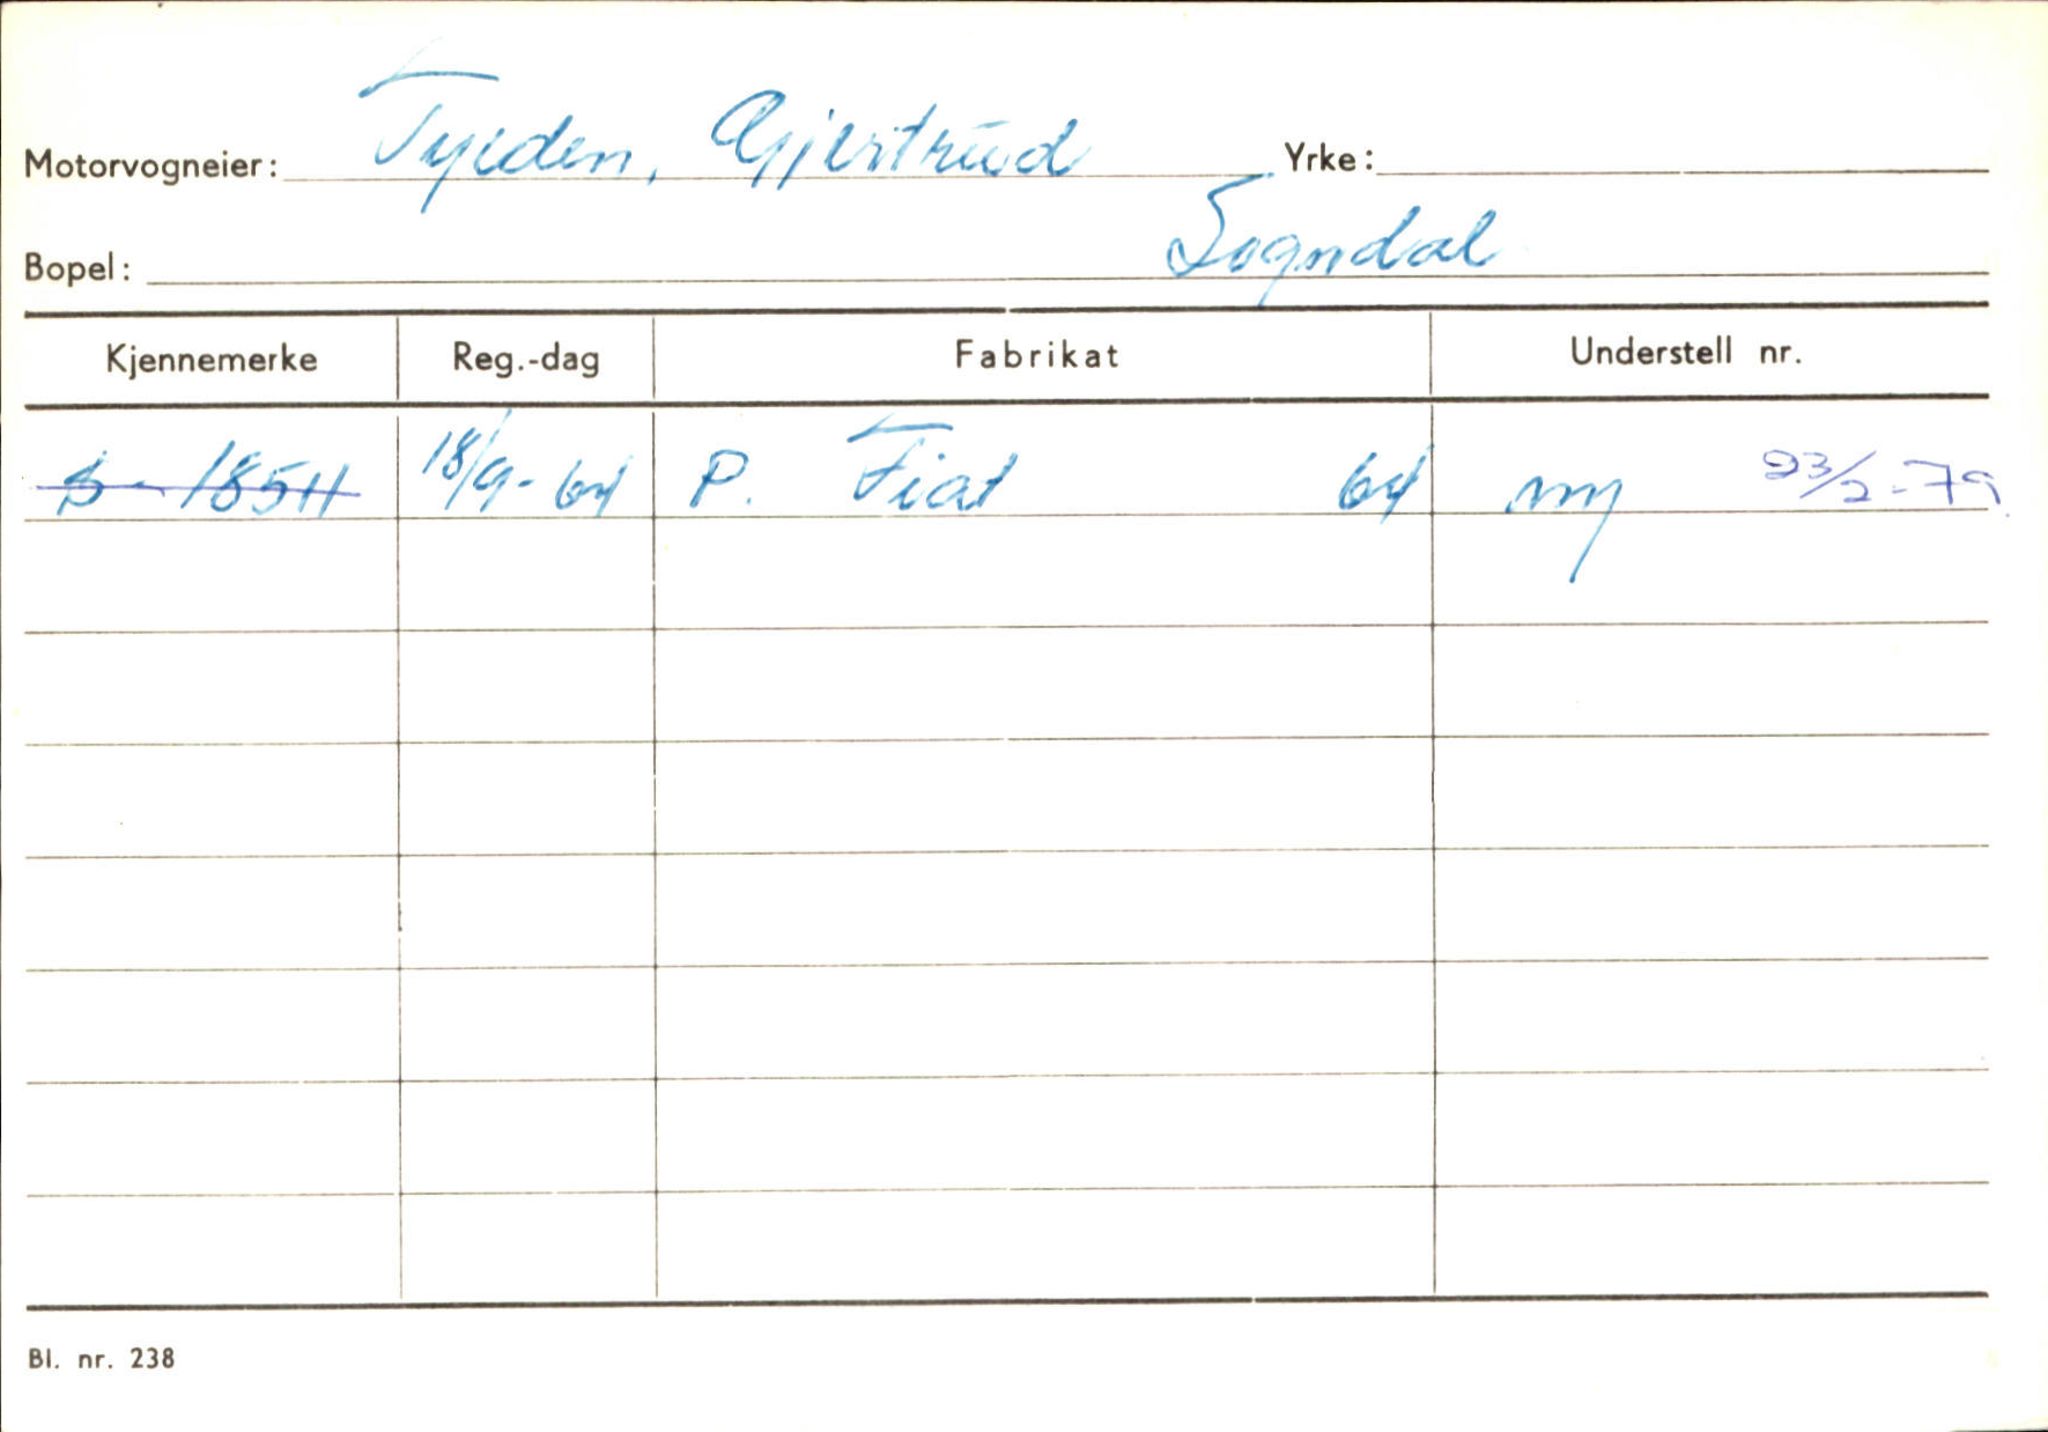 Motorvogneier: Tylden, Gjertrud Yrke:
Bopel: Sogndal
Kjennemerke Reg.-dag Fabrikat Understell nr.
S- 18511 18/9-64 P. Fiat 64 ny 23/2-79
Bl. nr. 238